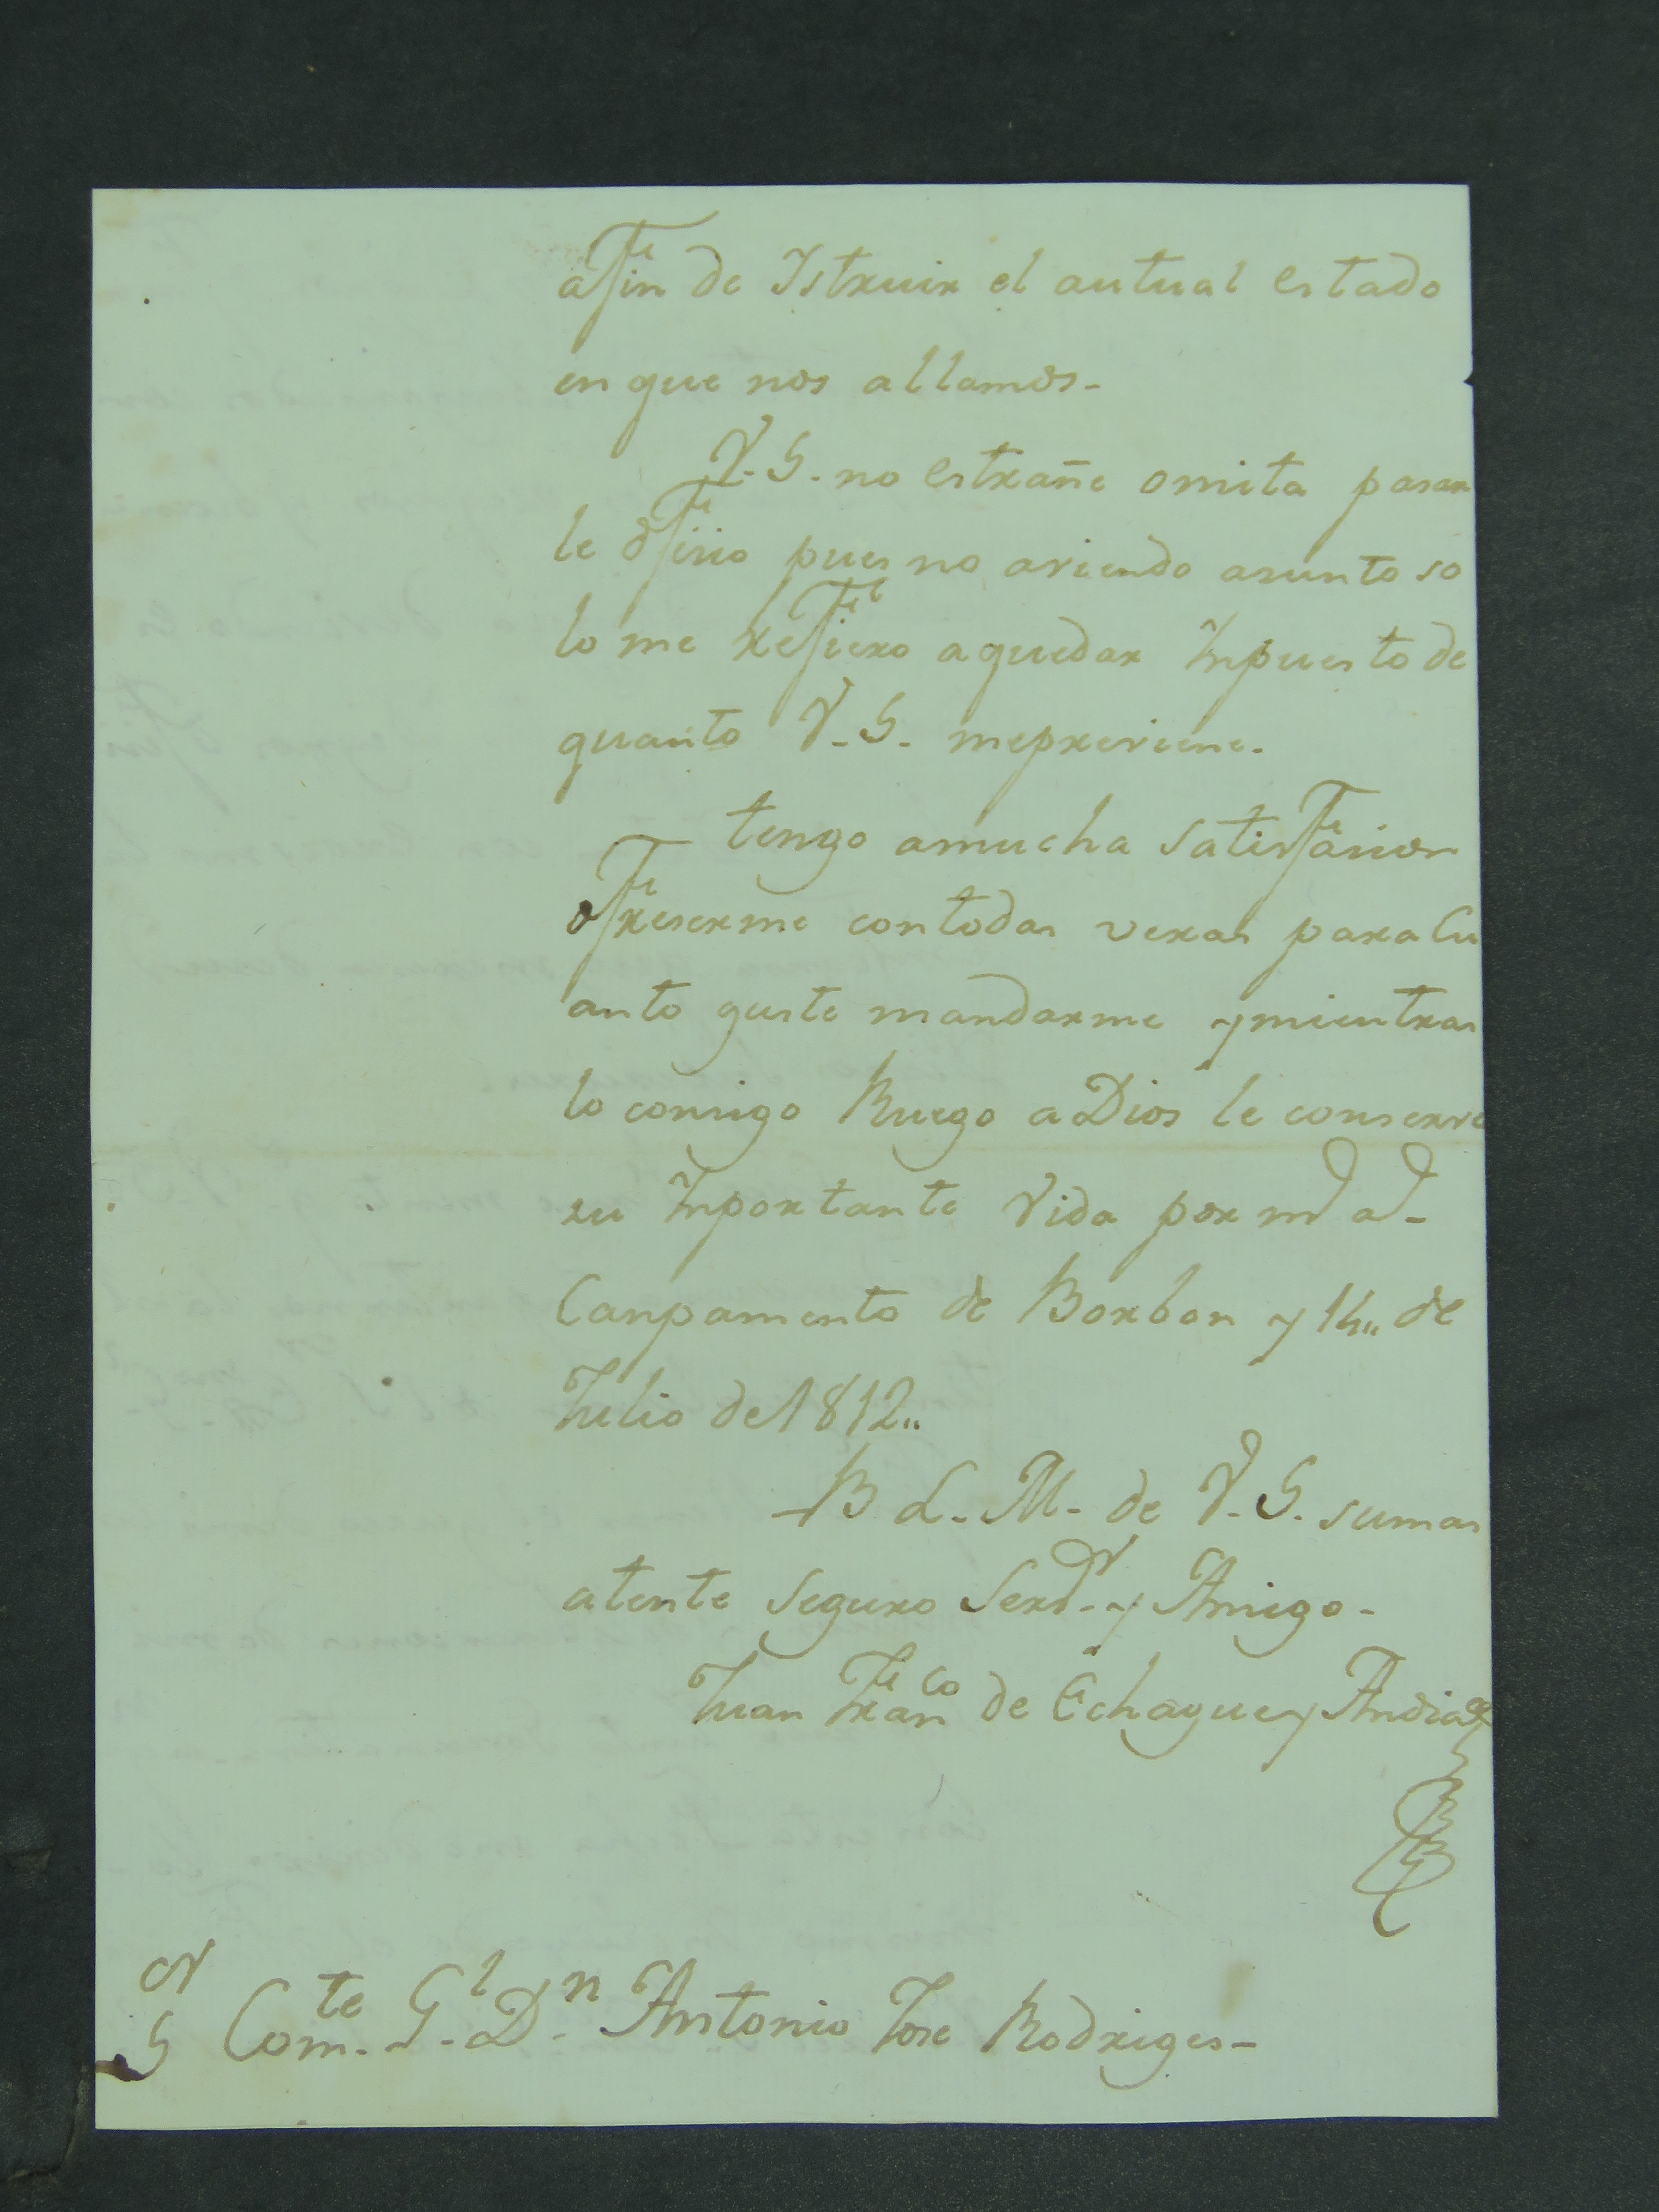 afin de Istruir el autual estado
en que nos allamos-
V.S. no estrañe omita pasar
le ofisio pues no aviendo asunto so
lo me refiero a quedar Inpuesto de
quanto V.S. mepreviene.
tengo amucha satisfasion
ofreserme contodas veras para Cu
anto guste mandarme y mientras
lo consigo Ruego a Dios le conserve
su Inportante Vida por md ad-
Canpamento de Borbon y 14,, de
Julio de 1812,,
B L. M. de V.S. sumas
atente seguro Serdr y Amigo-
Juan Franco de Echague y Andia
Sr Comte Gl Dn Antonio Jose Rodriges-